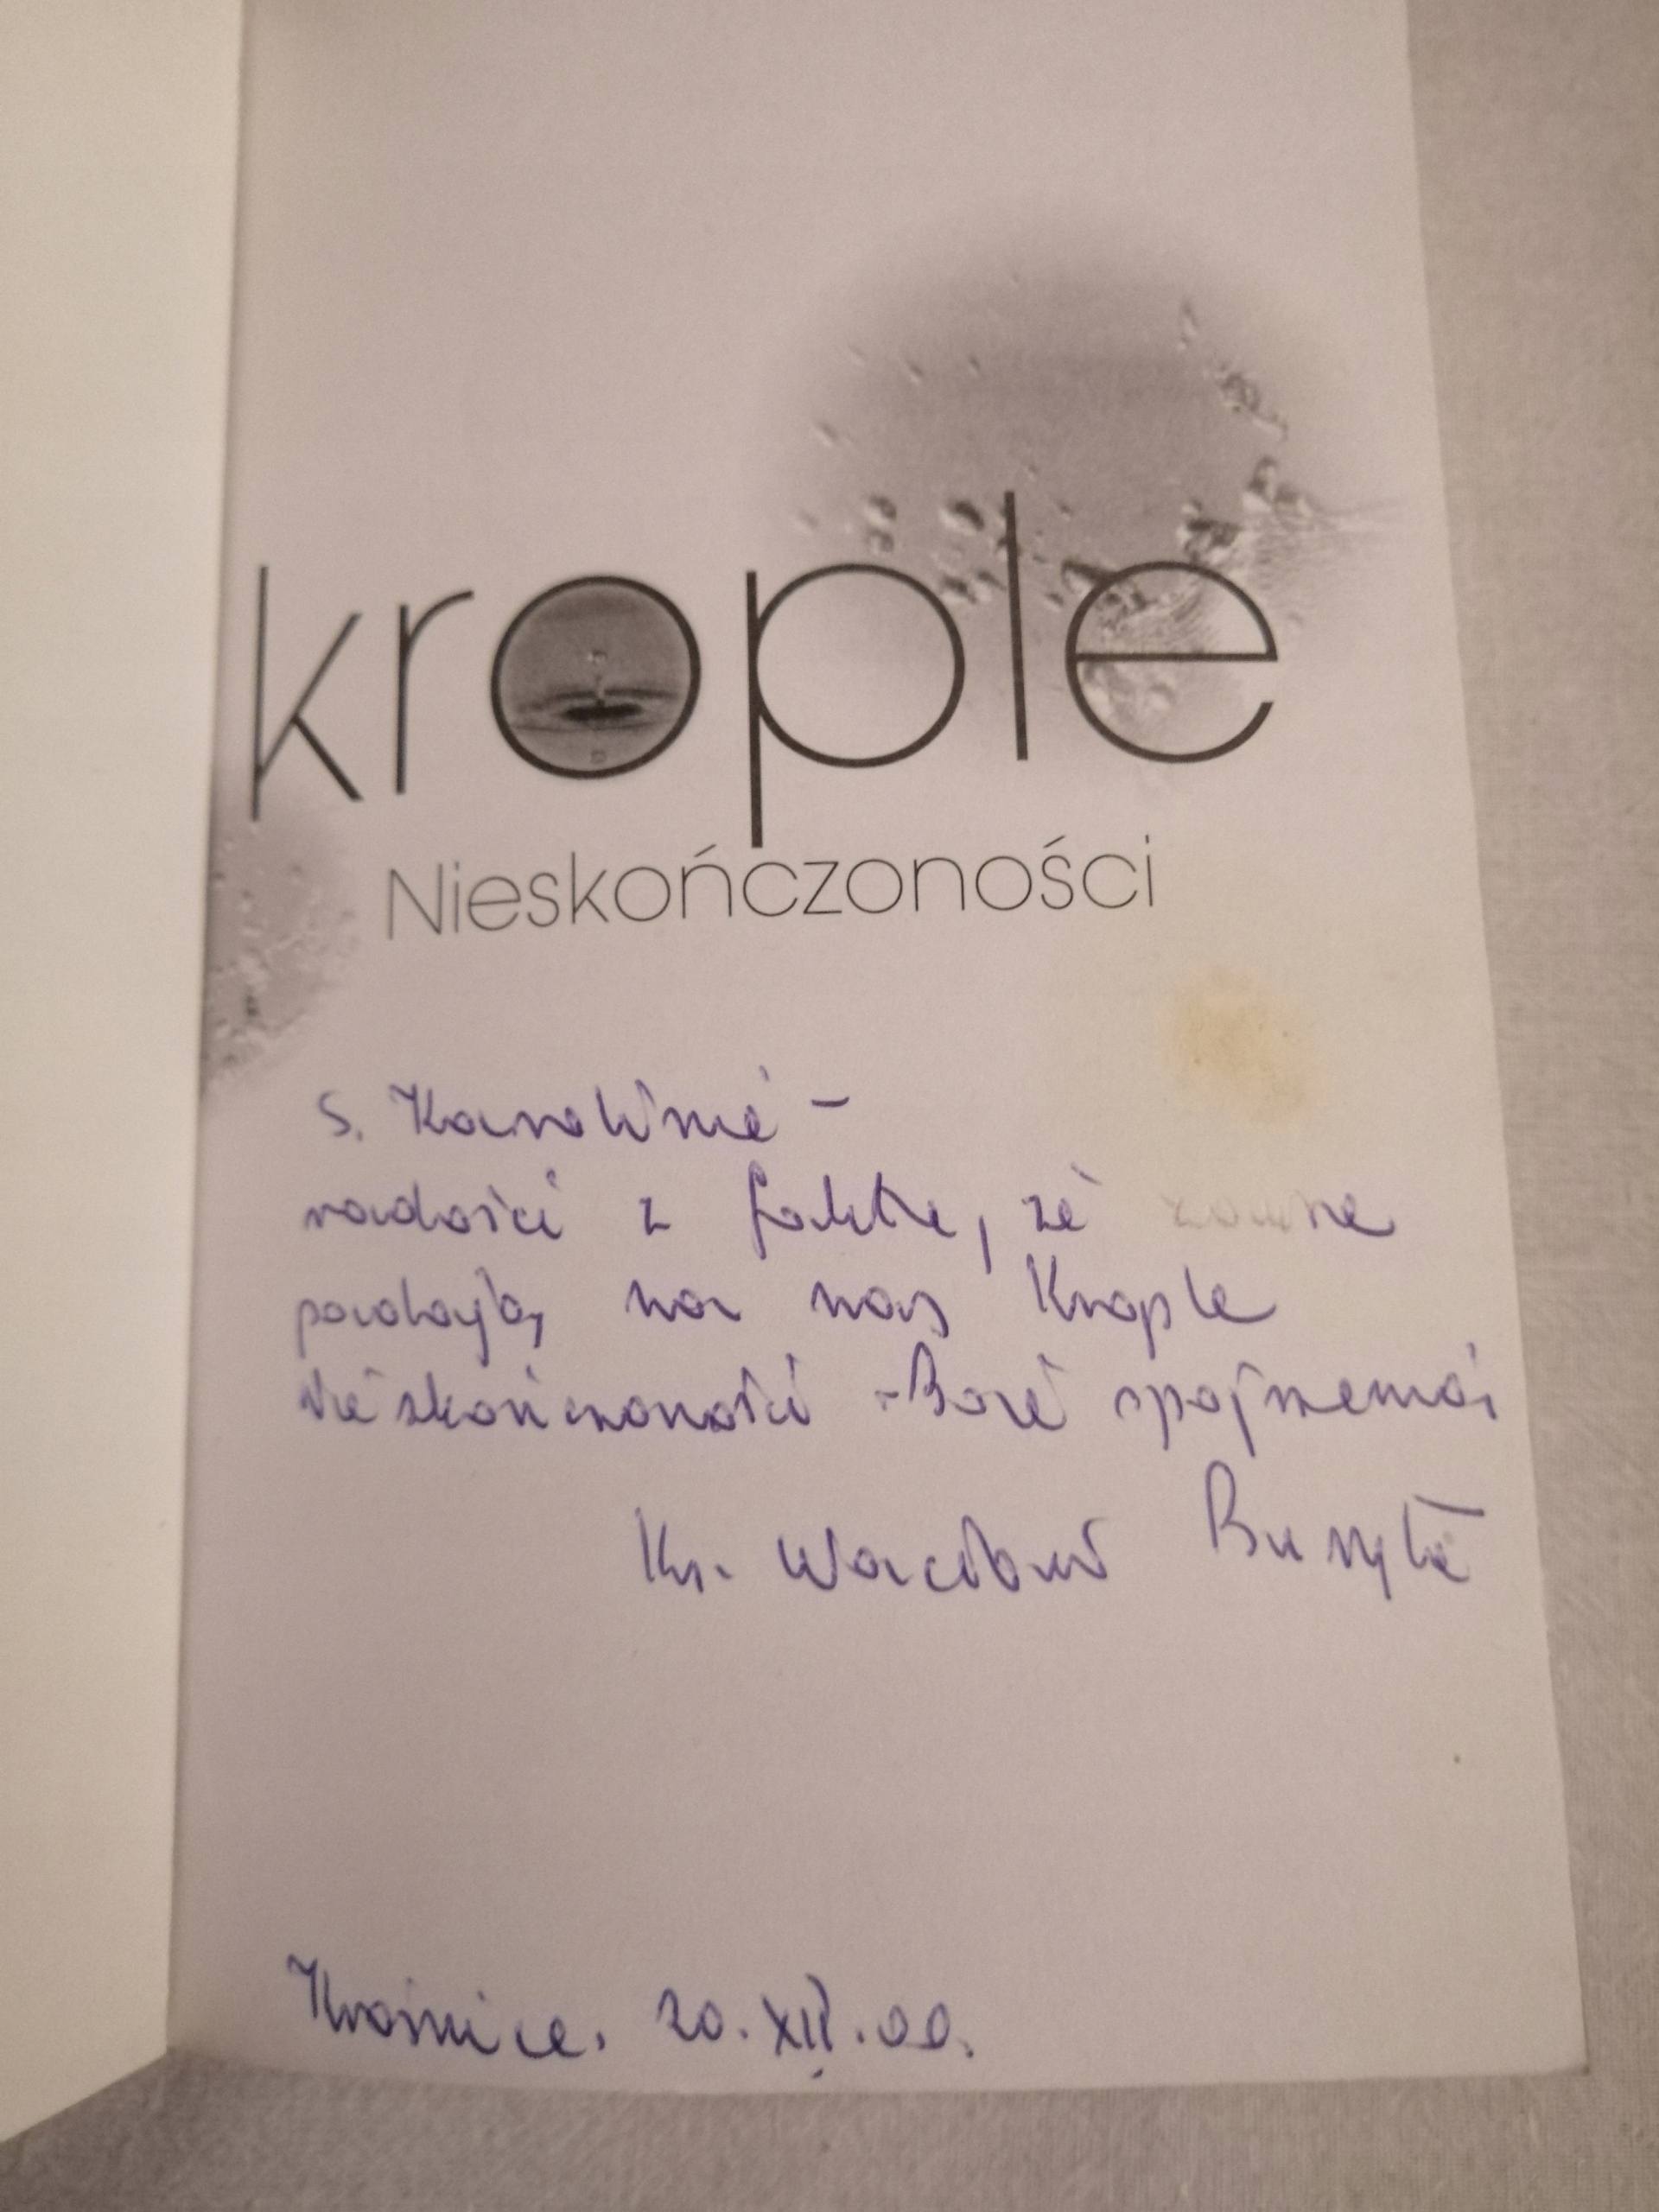 krople
Nieskończoności
S. Karolinie –
radości z faktu, że zawsze
padają na nas Krople
Nieskończoności - Boże spojrzenia
Ks. Wacław Buryła
Krośnice. 20.XII.00.